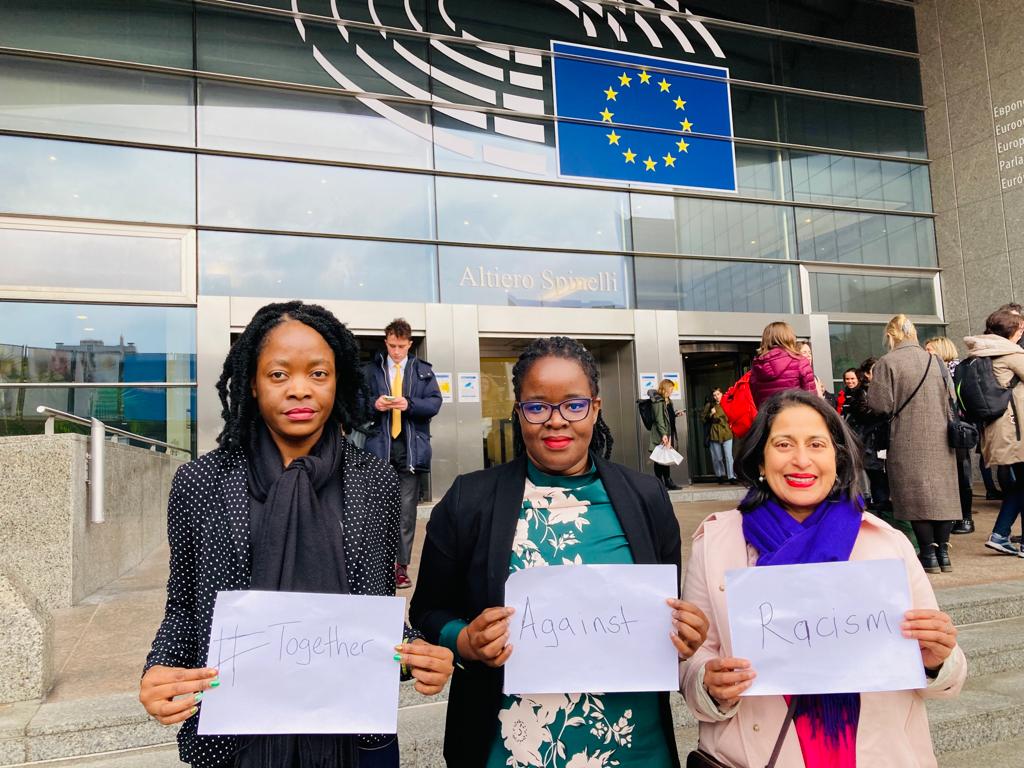 Altiero Spinelli
Европ
Euroo
Europ
Parla
Euró
#Together
Against
Racism